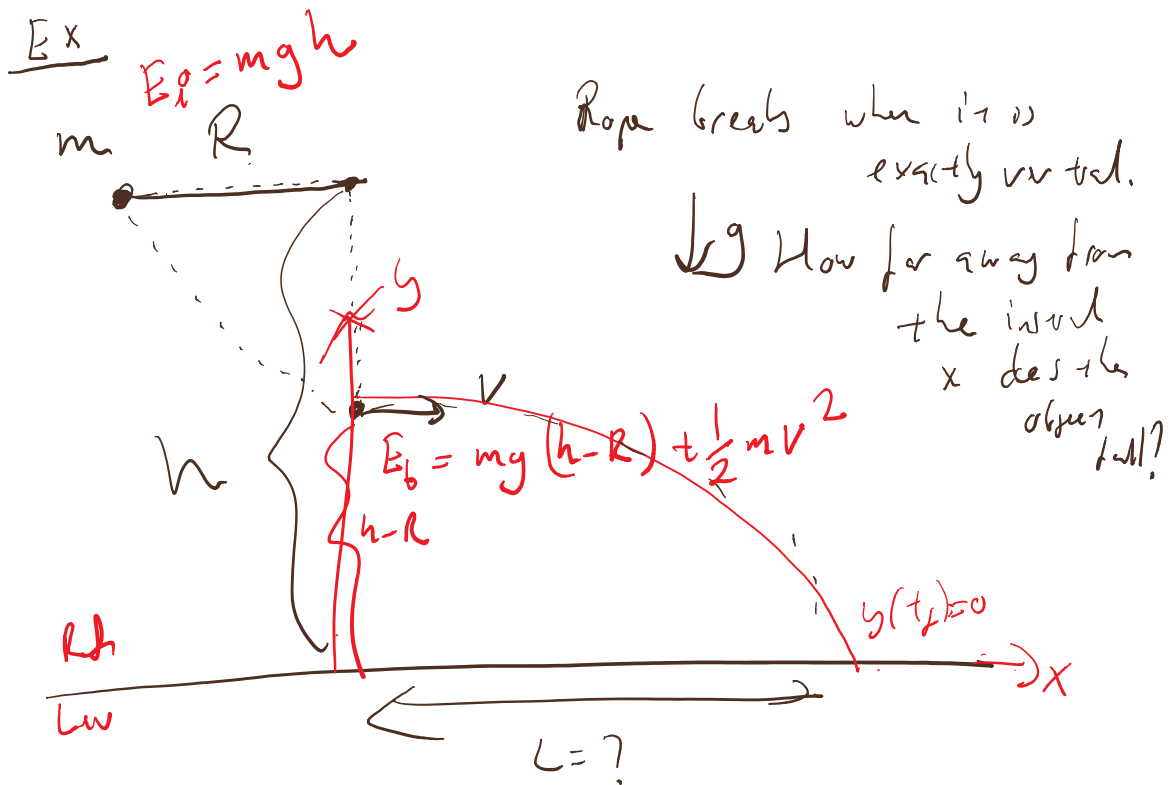 Ex
E_i = mgh
m R
Rope breaks when it is
exactly vertical.
↓g How far away from
the
x does the
object
fall?
y
V
h
E_b = mg(h-R) + 1/2 mV^2
h-R
y(t_f)=0
x
L=?